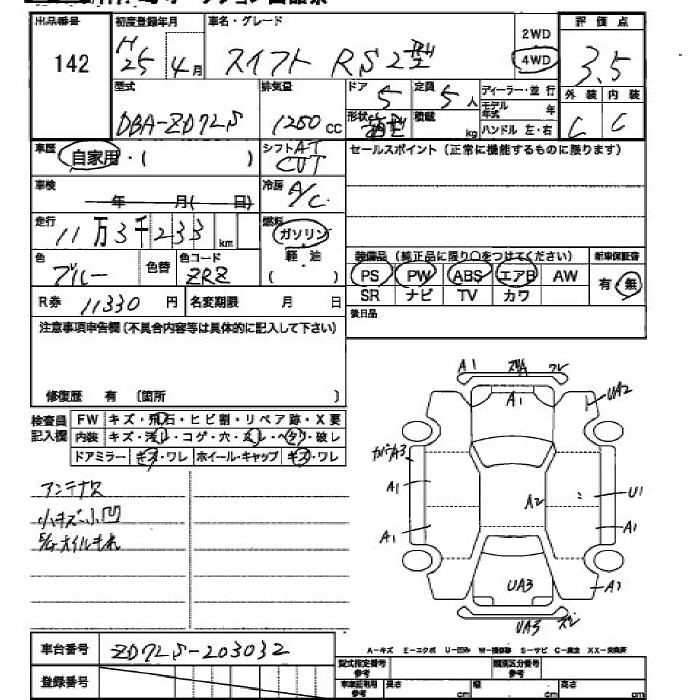 出品番号 初度登録年月 車名・グレード 2WD 評価点
142 H25年4月 スイフト RS2型 4WD 3.5
型式 排気量 ドア 5 定員 5人 ディーラー・並行 外装 内装
DBA-ZD72S 1200cc 形状 積載 kg モデル年式 年 C C
ハンドル 左・右
車歴 自家用・( ) シフト AT CVT セールスポイント(正常に機能するものに限ります)
車検 年 月( 日) 冷房 A/C
走行 11万3千233km 燃料 ガソリン
軽・油
( )
色 ブルー 色替 色コード ZRZ
装備品(純正品に限り○をつけてください) 新車保証書
PS PW ABS エアB AW 有・無
SR ナビ TV カワ
R券 11330円 名変期限 月 日 後日品
注意事項申告欄(不具合内容等は具体的に記入して下さい)
修復歴 有 〔箇所 〕
検査員記入欄 FW キズ・飛石・ヒビ割・リペア跡・X要
内装 キズ・汚レ・コゲ・穴・スレ・ヘタリ・破レ
ドアミラー キズ・ワレ ホイール・キャップ キズ・ワレ
A1 ワレ
A1 UA2
カバーA3
A1 A2 U1
A1 A1
UA3 A2
UA3
アンテナ欠
小キズ小凹
オイルもれ
A-キズ E-エクボ U-凹み W-補修跡 S-サビ C-腐食 XX-交換済
車台番号 ZD72S-203032 型式指定番号 参考 類別区分番号 参考
登録番号 長さ cm 幅 cm 高さ cm